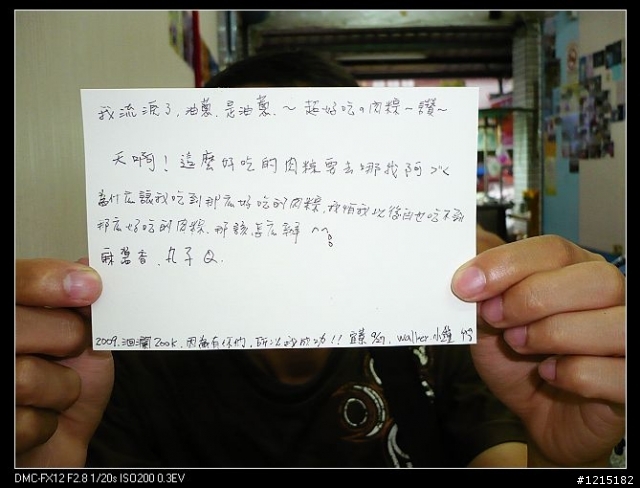 我流淚了,油蔥,是油蔥,~超好吃的肉粽~讚~
天啊!這麼好吃的肉粽要去哪找阿
為什麼讓我吃到那麼好吃的肉粽,我怕我以後再也吃不到
那麼好吃的肉粽,那該怎麼辦 ^^
麻醬香,丸子Q.
2009.洄瀾200K,因為有你們,所以我成功!! Walker 小鐘
DMC-FX12 F2.8 1/20s ISO200 0.3EV
#1215182